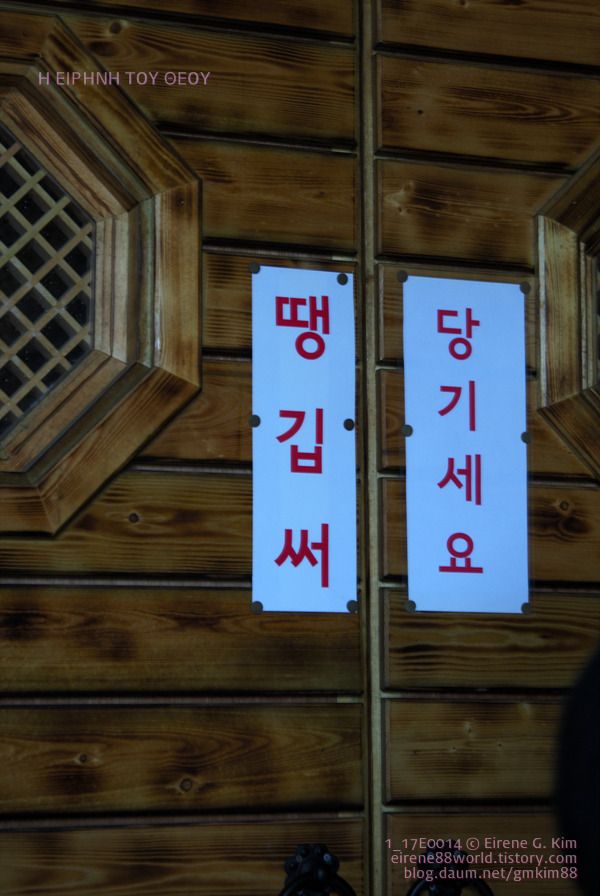 Η ΕΙΡΗΝΗ ΤΟΥ ΘΕΟΥ
땡깁써
당기세요
1_17E0014 © Eirene G. Kim
eirene88world.tistory.com
blog.daum.net/gmkim88